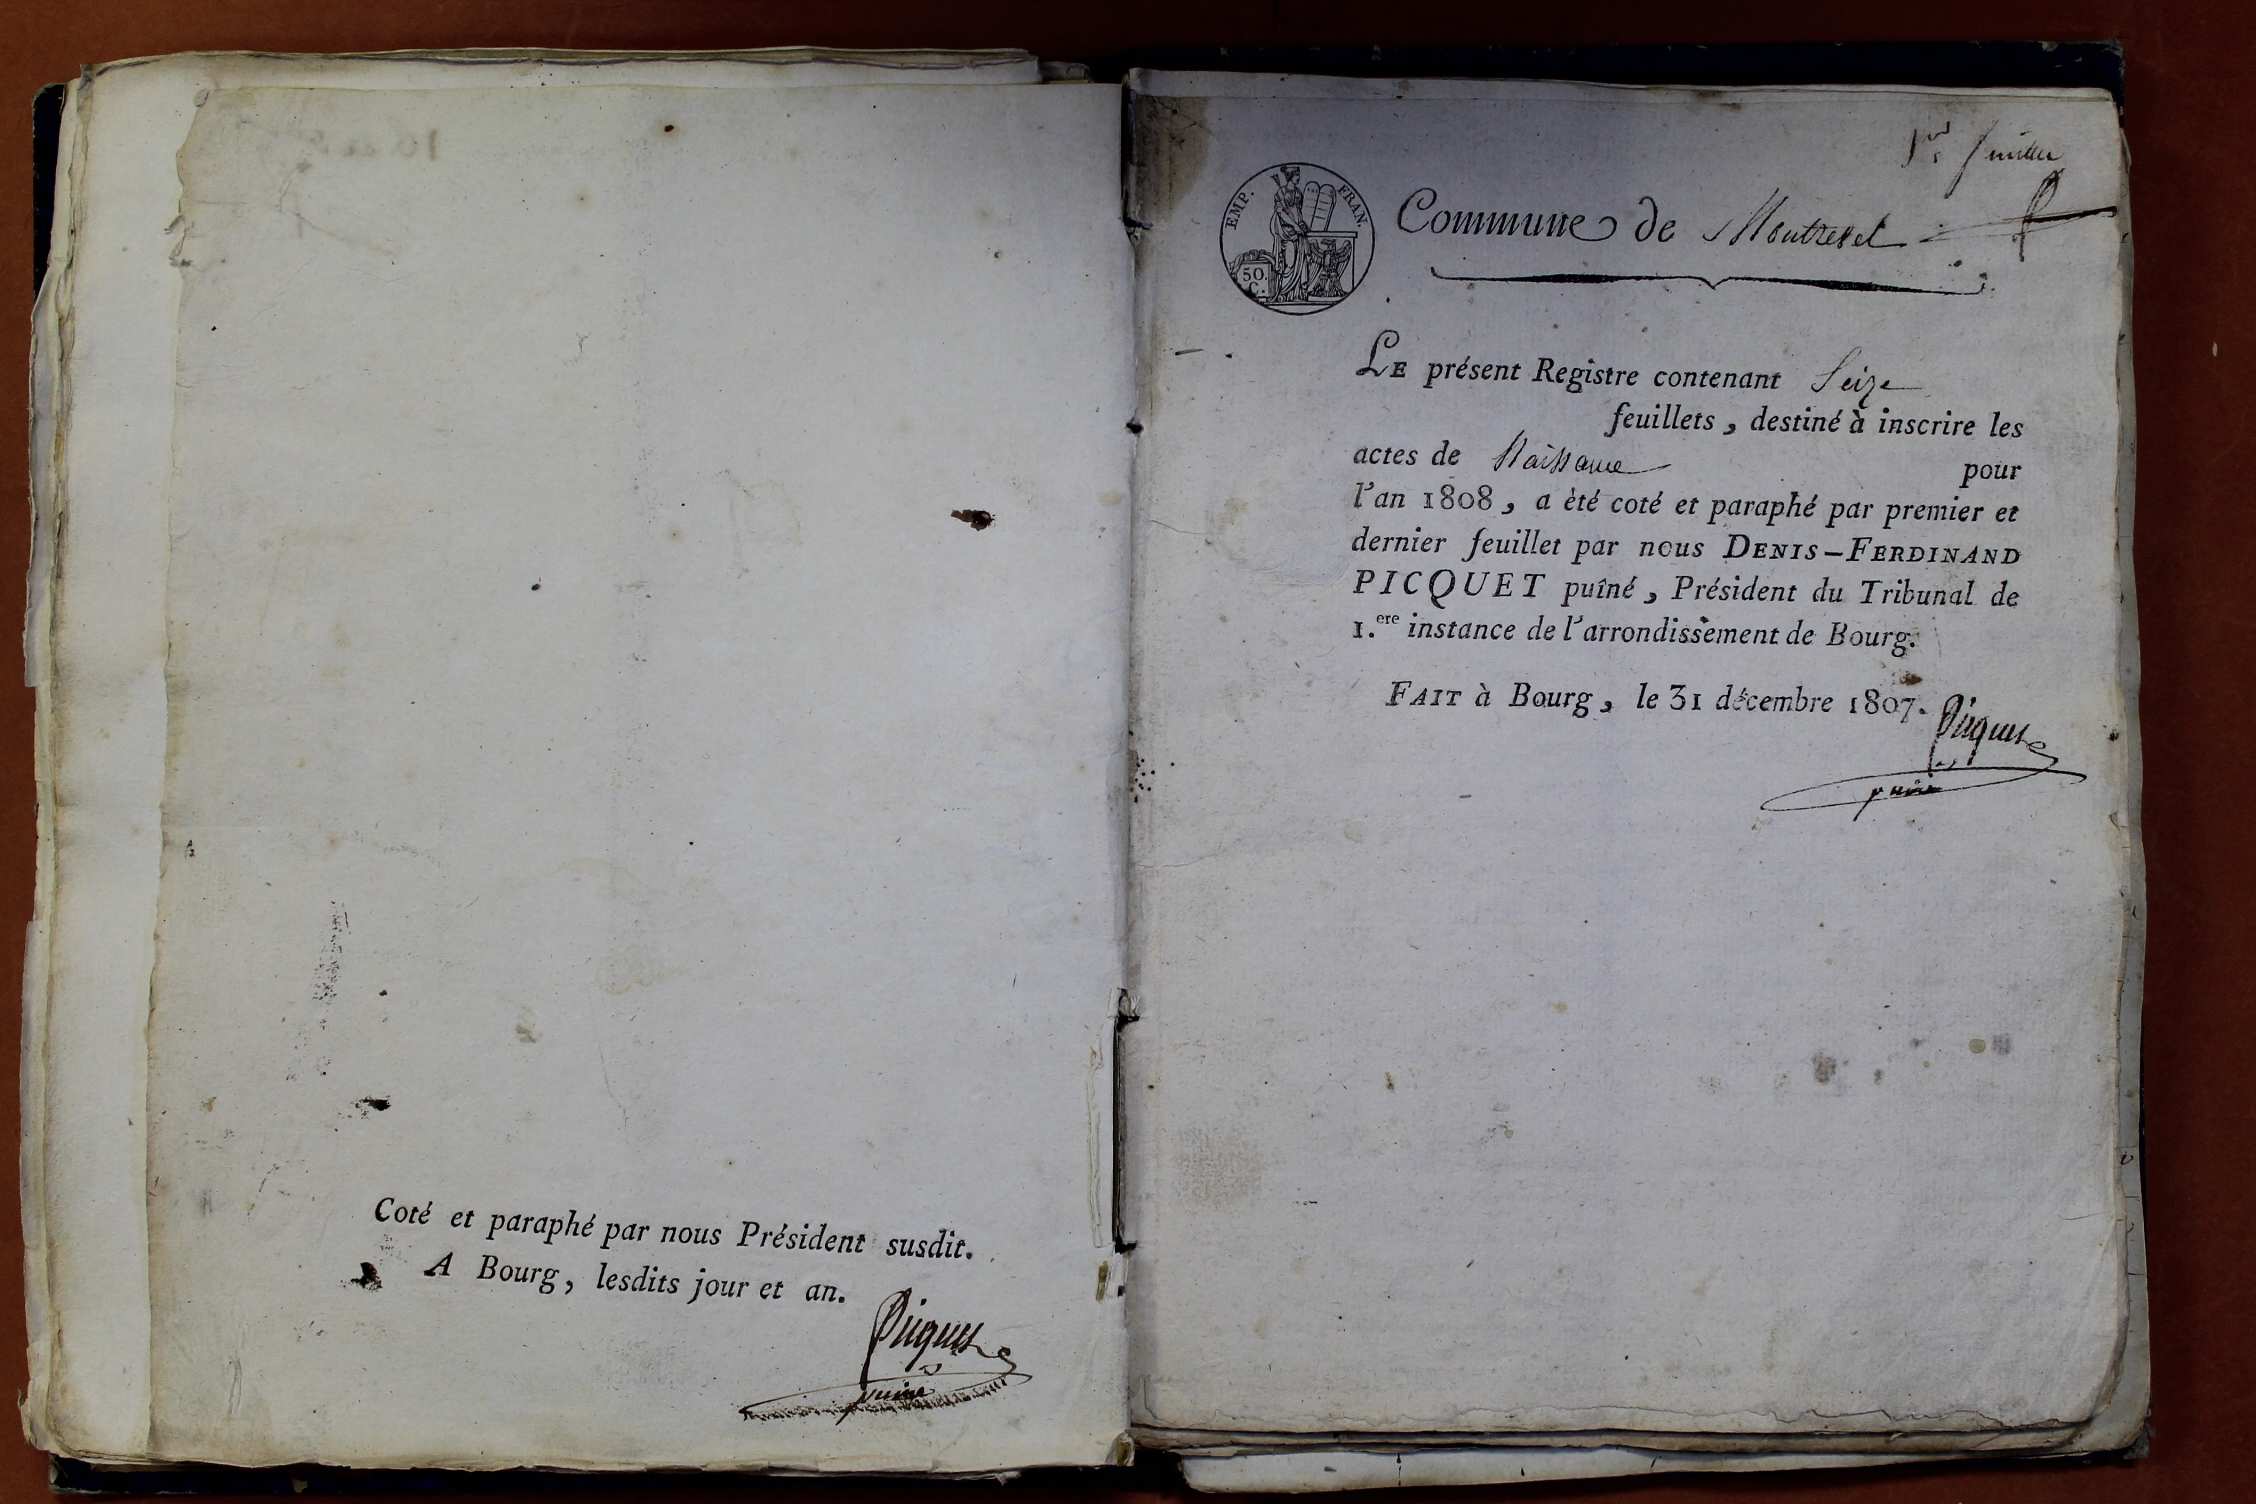 Coté et paraphé par nous Président susdit.
A Bourg, lesdits jour et an.
Picquet
puiné
1er feuillet
EMP. FRAN.
50.
C.
Commune de Montrevel
LE présent Registre contenant Seize
feuillets, destiné à inscrire les
actes de Naissance pour
l'an 1808, a èté coté et paraphé par premier et
dernier feuillet par nous DENIS-FERDINAND
PICQUET puîné, Président du Tribunal de
1.ere instance de l'arrondissement de Bourg.
FAIT à Bourg, le 31 décembre 1807.
Picquet
puiné